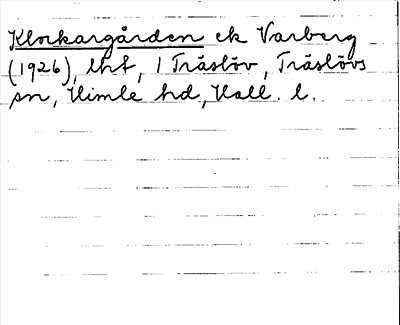 Klockargården ek Varberg
(1926), lhf, 1 Träslöv, Träslövs
sn, Himle hd, Hall. l.